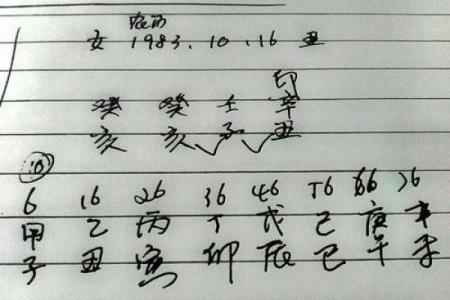 农历
女 1983.10.16 丑
印
癸 癸 壬 辛
亥 亥 子 丑
10
6 16 26 36 46 56 66 76
甲 乙 丙 丁 戊 己 庚 辛
子 丑 寅 卯 辰 巳 午 未